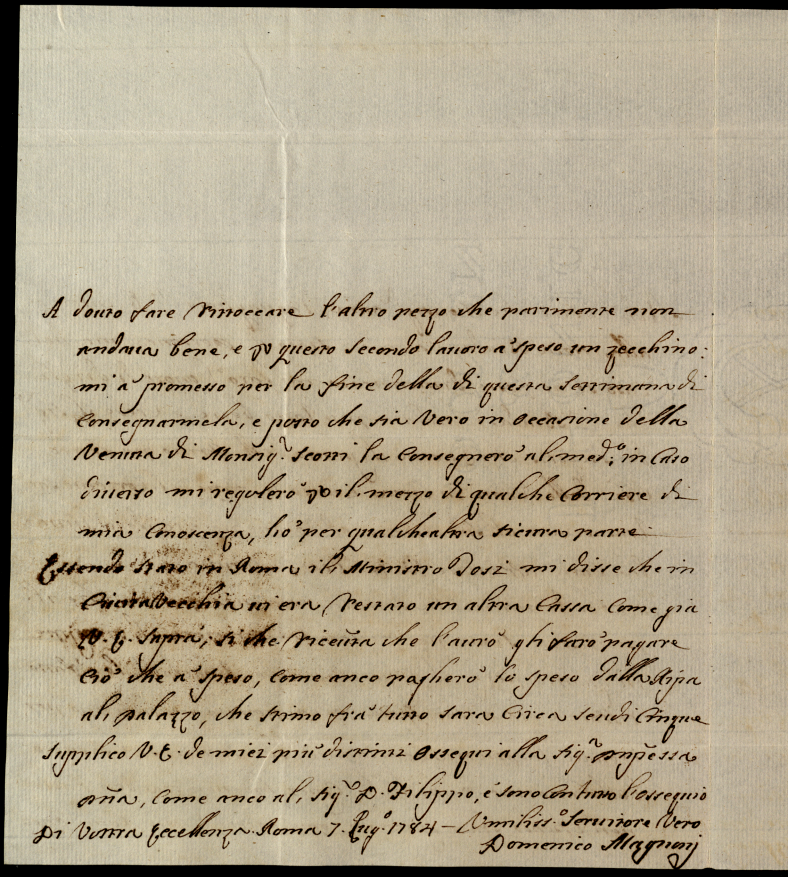 A douto fare rittoccare l'altro pezzo che parimente non
andava bene, e p questo secondo lavoro à speso un zecchino:
mi à promesso per la fine della di questa settimana di
Consegnarmela, e posto che sia vero in occasione della
Venuta di Monsig.r Scotti la Consegnerò al med.o: in caso
diverso mi regolerò p il mezzo di qualche Corriere di
mia Conoscenza, ò per qualchealtra sicura parte
Essendo stato in Roma il Ministro Dosi mi disse che in
CivitaVecchia vi era restato un altra Cassa Come già
V. E. saprà, si che ricevuta che l'aurò gli farò pagare
Ciò che à speso, Come anco pagherò lo speso dalla Ripa
al palazzo, che stimo frà tutto sara Circa scudi Cinque
Supplico V. E. de miei più distinti ossequi alla Sig.ra
Come anco al Sig.r D. Filippo, e sono con tutto l'ossequio
Di Vostra Eccellenza Roma 7. 1784 - Umiliss.o Servitore Vero
Domenico Magnonj